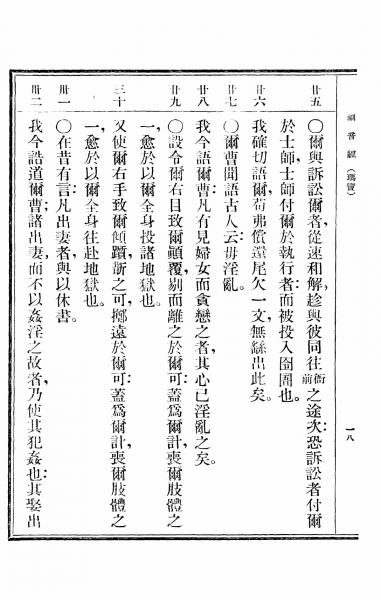 福音經(瑪竇)
一八
廿五
〇爾與訴訟爾者、從速和解、趁與彼同往衙前之途次、恐訴訟者付爾
於士師、士師付爾於執行者、而被投入囹圄也。
廿六
我確切語爾、苟弗償還尾欠一文、無繇出此矣。
廿七
〇爾曹聞語古人云、毋淫亂。
廿八
我今語爾曹、凡有見婦女而貪戀之者、其心已淫亂之矣。
廿九
〇設令爾右目致爾顛覆、剔而離之於爾可、蓋爲爾計、喪爾肢體之
一、愈於以爾全身投諸地獄也。
三十
又使爾右手致爾傾躓、斷之可、擲遠於爾可、蓋爲爾計、喪爾肢體之
一、愈於以爾全身往赴地獄也。
卅一
〇在昔有言、凡出妻者、與以休書。
卅二
我今誥道爾曹、諸出妻、而不以姦淫之故者、乃使其犯姦也、其娶出